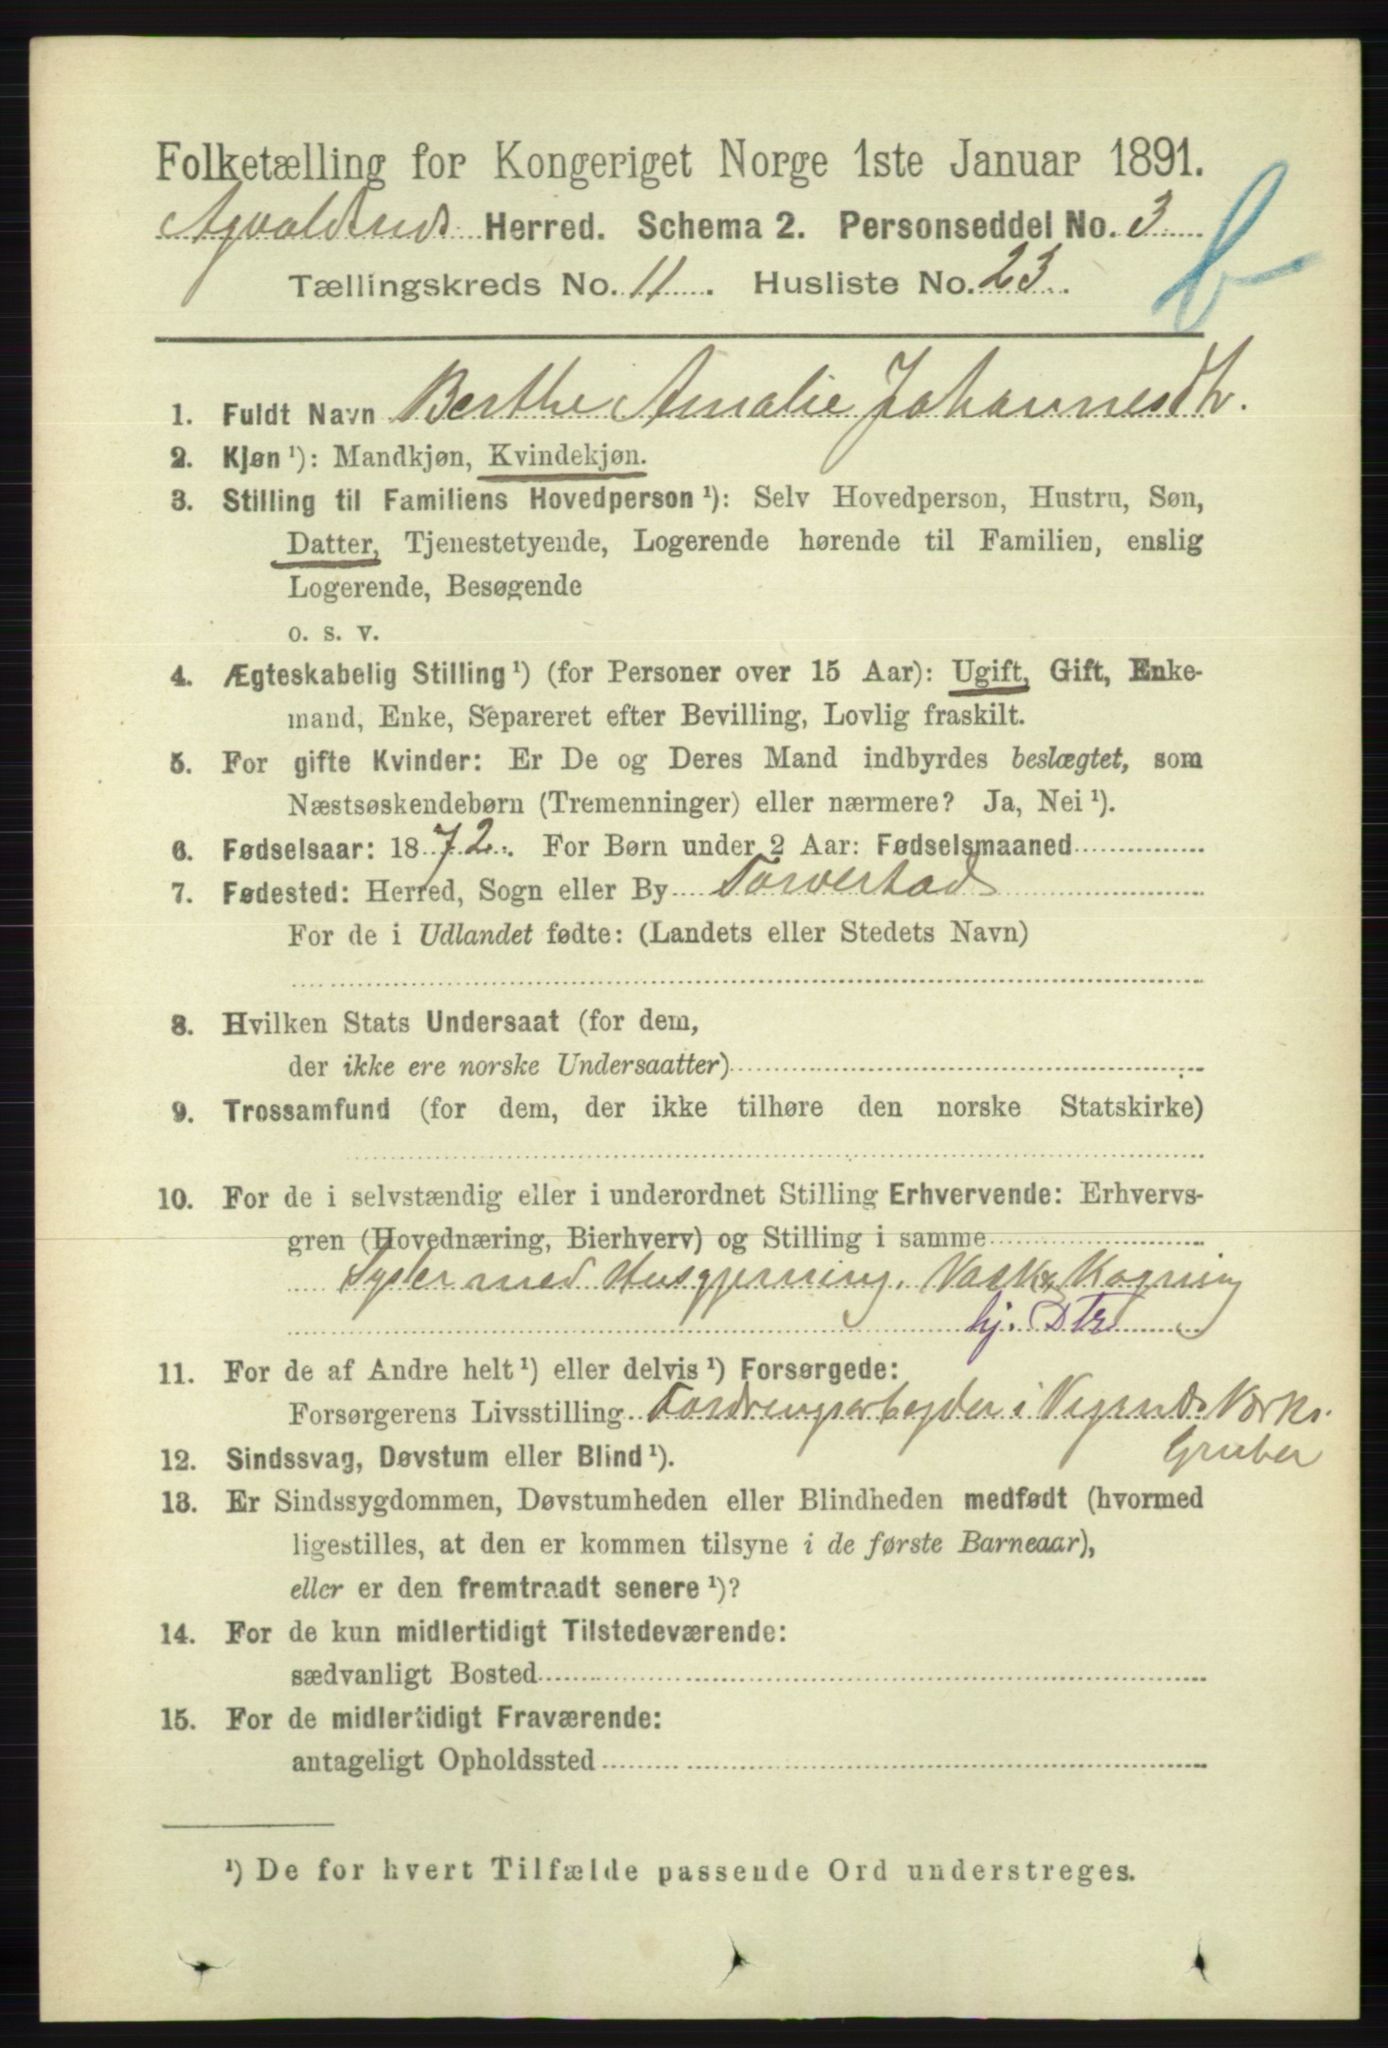 Folketælling for Kongeriget Norge 1ste Januar 1891.
Avaldsnes Herred. Schema 2. Personseddel No. 3
Tællingskreds No. 11. Husliste No. 23.
b
1. Fuldt Navn Berthe Amalie Johannesdtr.
2. Kjøn ¹): Mandkjøn, Kvindekjøn.
3. Stilling til Familiens Hovedperson ¹): Selv Hovedperson, Hustru, Søn,
Datter, Tjenestetyende, Logerende hørende til Familien, enslig
Logerende, Besøgende
o. s. v.
4. Ægteskabelig Stilling ¹) (for Personer over 15 Aar): Ugift, Gift, Enke-
mand, Enke, Separeret efter Bevilling, Lovlig fraskilt.
5. For gifte Kvinder: Er De og Deres Mand indbyrdes beslægtet, som
Næstsøskendebørn (Tremenninger) eller nærmere? Ja, Nei ¹).
6. Fødselsaar: 1872. For Børn under 2 Aar: Fødselsmaaned
7. Fødested: Herred, Sogn eller By Torvestad
For de i Udlandet fødte: (Landets eller Stedets Navn)
8. Hvilken Stats Undersaat (for dem,
der ikke ere norske Undersaatter)
9. Trossamfund (for dem, der ikke tilhøre den norske Statskirke)
10. For de i selvstændig eller i underordnet Stilling Erhvervende: Erhvervs-
gren (Hovednæring, Bierhverv) og Stilling i samme
Sysler med Husgjerning, Vask & Kogning
hj. Dtr
11. For de af Andre helt ¹) eller delvis ¹) Forsørgede:
Forsørgerens Livsstilling Fordringsarbeyder i Vigsnds Værks.
Gruber
12. Sindssvag, Døvstum eller Blind ¹).
13. Er Sindssygdommen, Døvstumheden eller Blindheden medfødt (hvormed
ligestilles, at den er kommen tilsyne i de første Barneaar),
eller er den fremtraadt senere ¹)?
14. For de kun midlertidigt Tilstedeværende:
sædvanligt Bosted
15. For de midlertidigt Fraværende:
antageligt Opholdssted
¹) De for hvert Tilfælde passende Ord understreges.